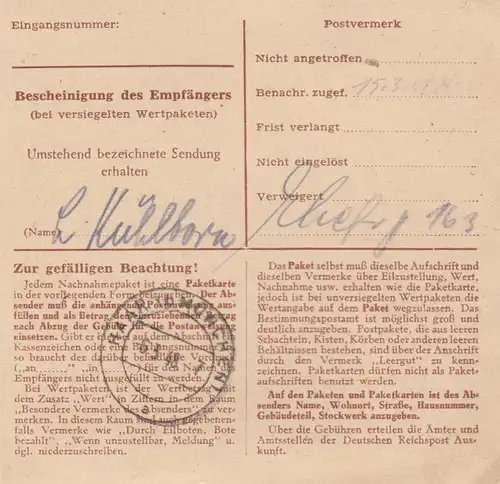 Eingangsnummer:
Bescheinigung des Empfängers
(bei versiegelten Wertpaketen)
Umstehend bezeichnete Sendung
erhalten
(Name) L. Kühlborn
Postvermerk
Nicht angetroffen
Benachr. zugef. 15.3.
Frist verlangt
Nicht eingelöst
Verweigert
163
Zur gefälligen Beachtung!
Jedem Nachnahmepaket ist eine Paketkarte
in der vorliegenden Form beizugeben. Der Ab-
sender muß die anhängende Postanweisung aus-
füllen und als Betrag den einzuziehenden Betrag
nach Abzug der Gebühr für die Postanweisung
einsetzen. Gibt er auf dem Abschnitt
Kassenzeichen oder eine Buchungsnummer an,
so braucht der darüber befindliche Vordruck
(„an ........“, „in ........“) für den Namen des
Empfängers nicht ausgefüllt zu werden.
Bei Wertpaketen ist der Wertbetrag mit
dem Zusatz „Wert“ in Ziffern in dem Raum
„Besondere Vermerke des Absenders“ zu ver-
merken. In diesem Raum sind auch gegebenen-
falls Vermerke wie „Durch Eilboten, Bote
bezahlt“, „Wenn unzustellbar, Meldung“ u.
dgl. niederzuschreiben.
Das Paket selbst muß dieselbe Aufschrift und
dieselben Vermerke über Eilzustellung, Wert,
Nachnahme usw. erhalten wie die Paketkarte,
jedoch ist bei unversiegelten Wertpaketen die
Wertangabe auf dem Paket wegzulassen. Das
Bestimmungspostamt ist möglichst groß und
deutlich anzugeben. Postpakete, die aus leeren
Schachteln, Kisten, Körben oder anderen leeren
Behältnissen bestehen, sind über der Anschrift
durch den Vermerk „Leergut“ zu kenn-
zeichnen. Paketkarten dürfen nicht als Paket-
aufschriften benutzt werden.
Auf den Paketen und Paketkarten ist des Ab-
senders Name, Wohnort, Straße, Hausnummer,
Gebäudeteil, Stockwerk anzugeben.
Über die Gebühren erteilen die Ämter und
Amtsstellen der Deutschen Reichspost Aus-
kunft.